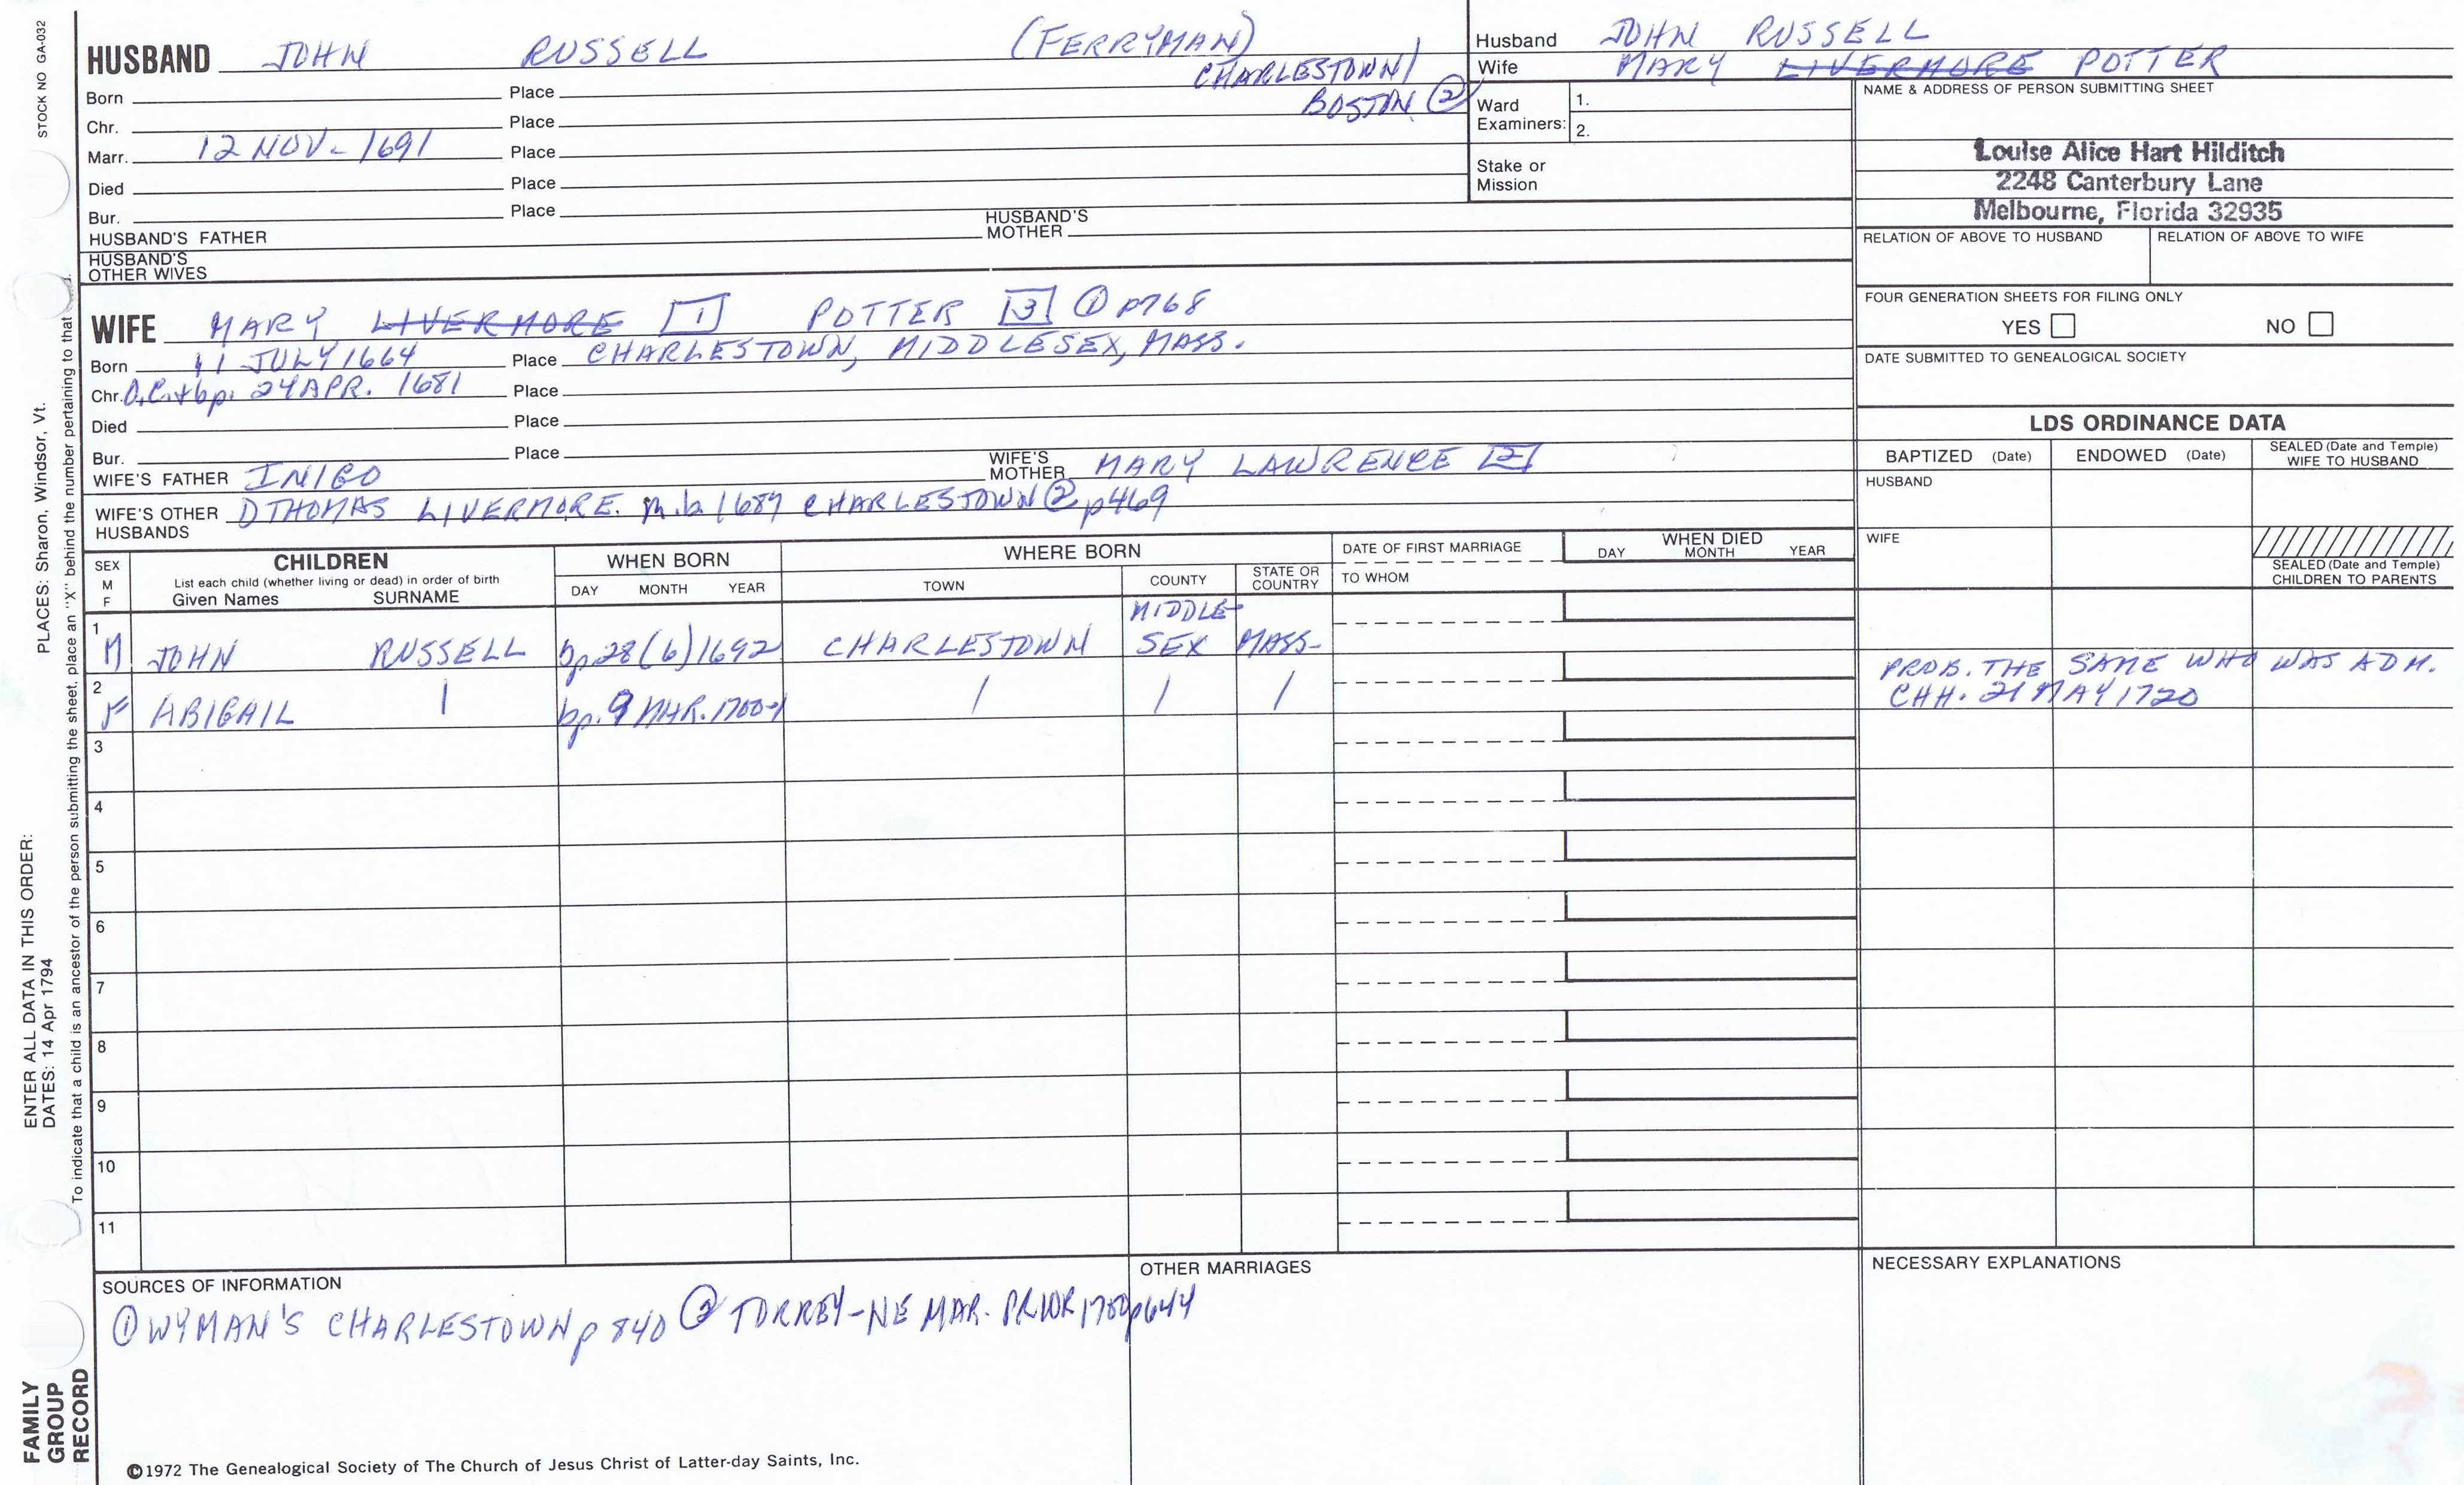 STOCK NO GA-032
HUSBAND JOHN RUSSELL (FERRYMAN)
CHARLESTOWN/
BOSTON ②
Born Place
Chr. Place
Marr. 12 NOV- 1691 Place
Died Place
Bur. Place
HUSBAND'S FATHER HUSBAND'S MOTHER
HUSBAND'S OTHER WIVES
Husband JOHN RUSSELL
Wife MARY LIVERMORE POTTER
Ward Examiners: 1.
2.
Stake or Mission
NAME & ADDRESS OF PERSON SUBMITTING SHEET
Louise Alice Hart Hilditch
2248 Canterbury Lane
Melbourne, Florida 32935
RELATION OF ABOVE TO HUSBAND RELATION OF ABOVE TO WIFE
FOUR GENERATION SHEETS FOR FILING ONLY
YES NO
DATE SUBMITTED TO GENEALOGICAL SOCIETY
WIFE MARY LIVERMORE 1 POTTER 3 ① p768
Born 11 JULY 1664 Place CHARLESTOWN, MIDDLESEX, MASS.
Chr. O.C.+bp. 24 APR. 1681 Place
Died Place
Bur. Place
WIFE'S FATHER INIGO WIFE'S MOTHER MARY LAWRENCE 2
WIFE'S OTHER HUSBANDS THOMAS LIVERMORE. m.b. 1687 CHARLESTOWN ② p469
LDS ORDINANCE DATA
BAPTIZED (Date) ENDOWED (Date) SEALED (Date and Temple) WIFE TO HUSBAND
HUSBAND
WIFE
SEALED (Date and Temple) CHILDREN TO PARENTS
SEX M F CHILDREN
List each child (whether living or dead) in order of birth
Given Names SURNAME
WHEN BORN
DAY MONTH YEAR
WHERE BORN
TOWN COUNTY STATE OR COUNTRY
DATE OF FIRST MARRIAGE
TO WHOM
WHEN DIED
DAY MONTH YEAR
1 M JOHN RUSSELL bp. 28 (6) 1692 CHARLESTOWN MIDDLE-SEX MASS-
2 F ABIGAIL | bp. 9 MAR. 1700-1 / / /
PROB. THE SAME WHO WAS ADM.
CHH. 21 MAY 1720
3
4
5
6
7
8
9
10
11
SOURCES OF INFORMATION
① WYMAN'S CHARLESTOWN p 840 ② TORREY-NE MAR. PRIOR 1700 p644
OTHER MARRIAGES
NECESSARY EXPLANATIONS
©1972 The Genealogical Society of The Church of Jesus Christ of Latter-day Saints, Inc.
ENTER ALL DATA IN THIS ORDER:
DATES: 14 Apr 1794
PLACES: Sharon, Windsor, Vt.
To indicate that a child is an ancestor of the person submitting the sheet, place an "X" behind the number pertaining to that
FAMILY
GROUP
RECORD